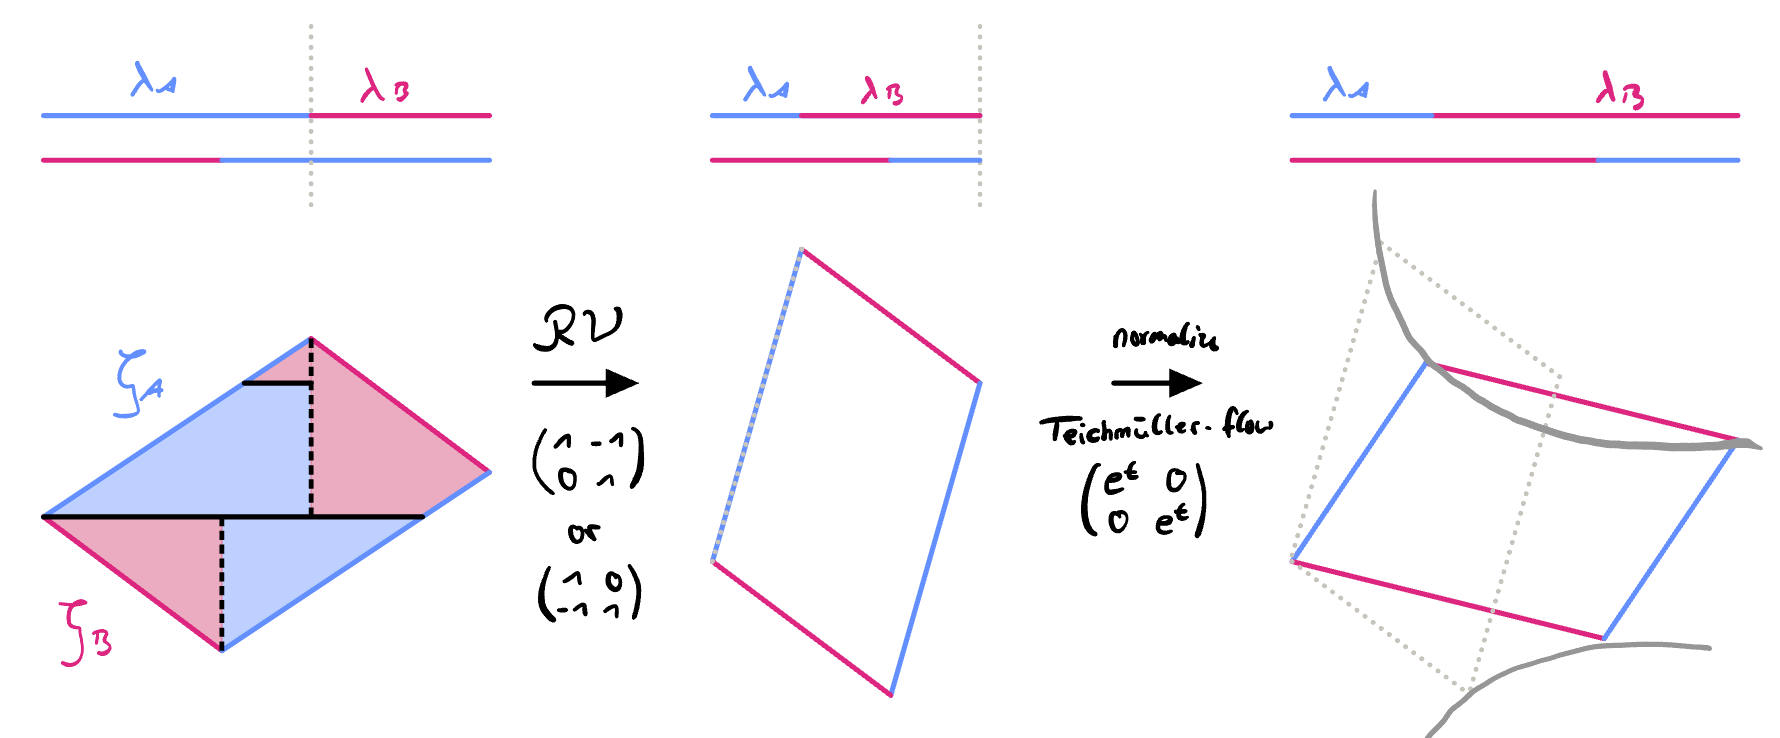 λA λB
λA λB
λA λB
ζA
ζB
RV
(1 -1
0 1)
or
(1 0
-1 1)
normalize
Teichmüller-flow
(eᵗ 0
0 eᵗ)